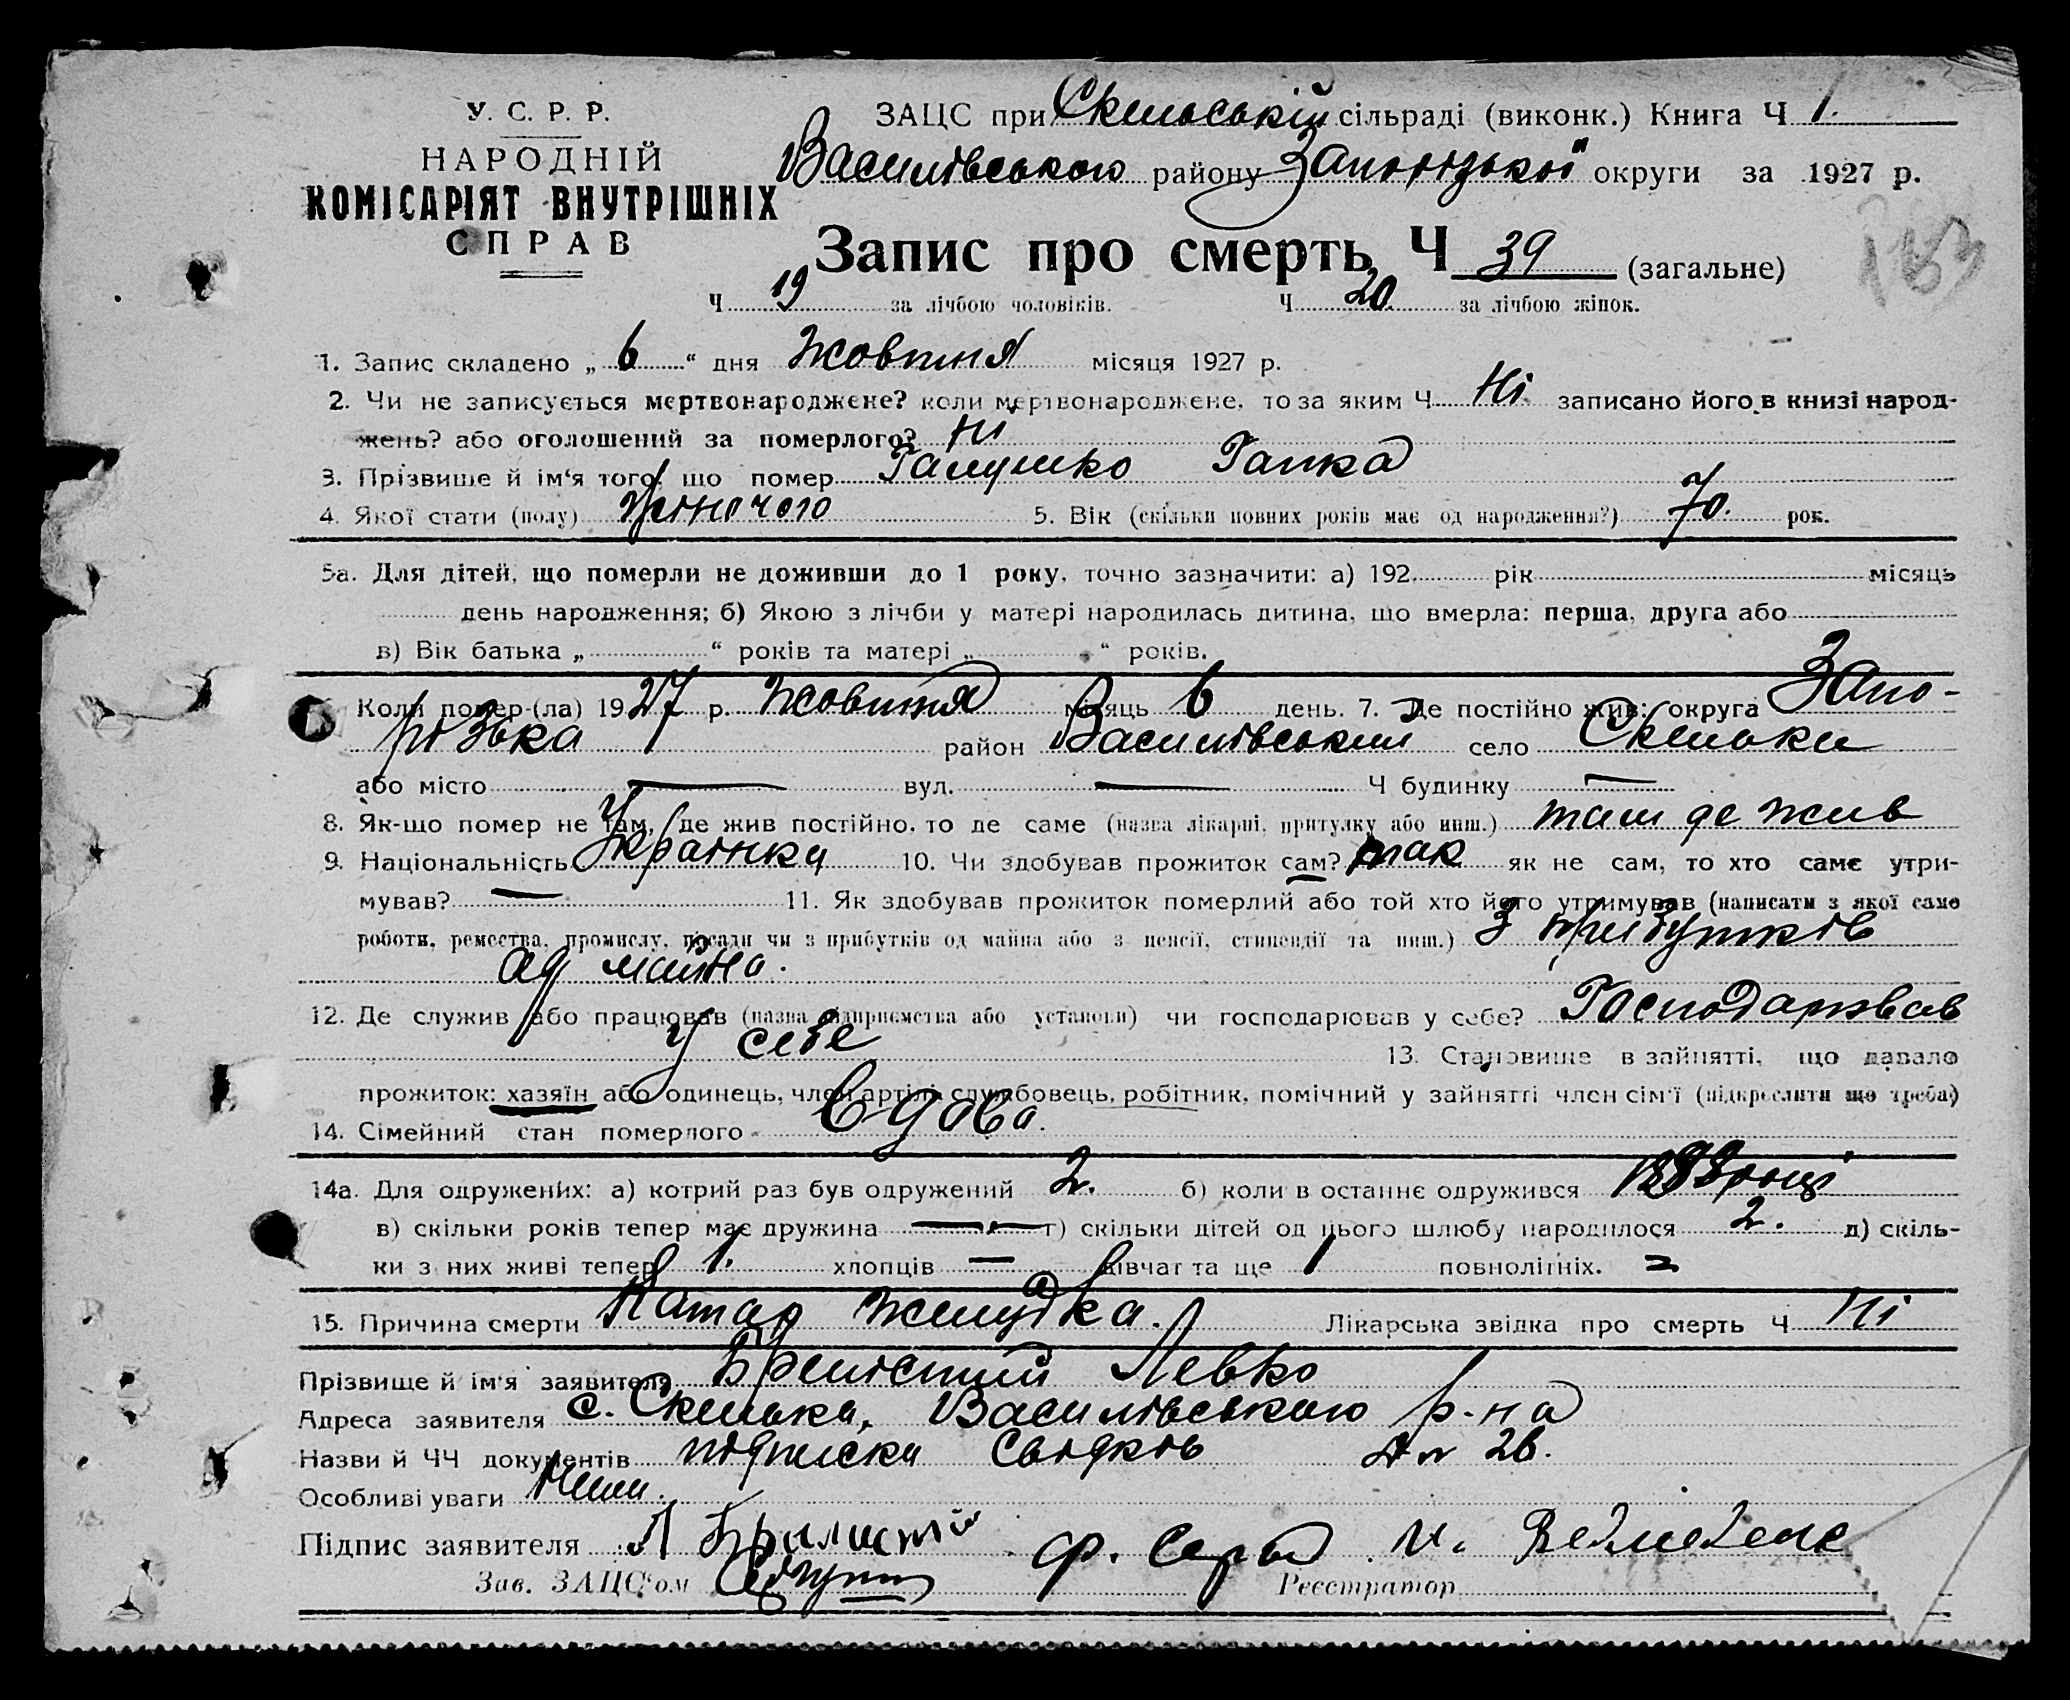 У. С. Р. Р.
НАРОДНІЙ
КОМІСАРІЯТ ВНУТРІШНІХ
СПРАВ
ЗАЦС при Скельській сільраді (виконк.) Книга Ч 1.
Василівського району Запоріzької округи за 1927 р.
Запис про смерть Ч 39 (загальне)
Ч 19 за лічбою чоловіків. Ч 20 за лічбою жінок.
1. Запис складено „ 6 “ дня Жовтня місяця 1927 р.
2. Чи не записується мертвонароджене? коли мертвонароджене, то за яким Ч Ні записано його в книзі народ-
жень? або оголошений за померлого? Ні
3. Прізвище й ім‘я того, що помер Галушко Гапка
4. Якої стати (полу) жіночого 5. Вік (скільки повних років має од народження?) 70. рок.
5а. Для дітей, що померли не доживши до 1 року, точно зазначити: а) 192 рік місяць
день народження; б) Якою з лічби у матері народилась дитина, що вмерла: перша, друга або
в) Вік батька „ “ років та матері „ “ років.
Коли помер-(ла) 1927 р. Жовтня місяць 6 день. 7. Де постійно жив: округа Запо-
різька район Василівський село Скельки
або місто — вул. — Ч будинку —
8. Як-що помер не там, де жив постійно, то де саме (назва лікарні, притулку або инш.) там де жив
9. Національність Українка 10. Чи здобував прожиток сам? так як не сам, то хто саме утри-
мував? — 11. Як здобував прожиток померлий або той хто його утримував (написати з якої саме
роботи, ремества, промислу, посади чи з прибутків од майна або з пенсії, стипендії та инш.) З прибутків
од майна.
12. Де служив або працював (назва підприємства або установи) чи господарював у себе? Господарював
у себе
13. Становище в зайнятті, що давало
прожиток: хазяїн або одинець, член артілі, службовець, робітник, помічний у зайнятті член сім‘ї (підкреслити що треба)
14. Сімейний стан померлого Вдова.
14а. Для одружених: а) котрий раз був одружений 2. б) коли в останнє одружився році
в) скільки років тепер має дружина — г) скільки дітей од цього шлюбу народилося 2. д) скіль-
ки з них живі тепер 1. хлопців — дівчат та ще 1 повнолітніх.
15. Причина смерти Катар желудка. Лікарська звідка про смерть Ч Ні
Прізвище й ім‘я заявителя Левко
Адреса заявителя с. Скельки, Василівського р-на
Назви й ЧЧ документів підписка свідків
Особливі уваги Нема.
Підпис заявителя Л
Зав. ЗАЦС‘ом Реєстратор